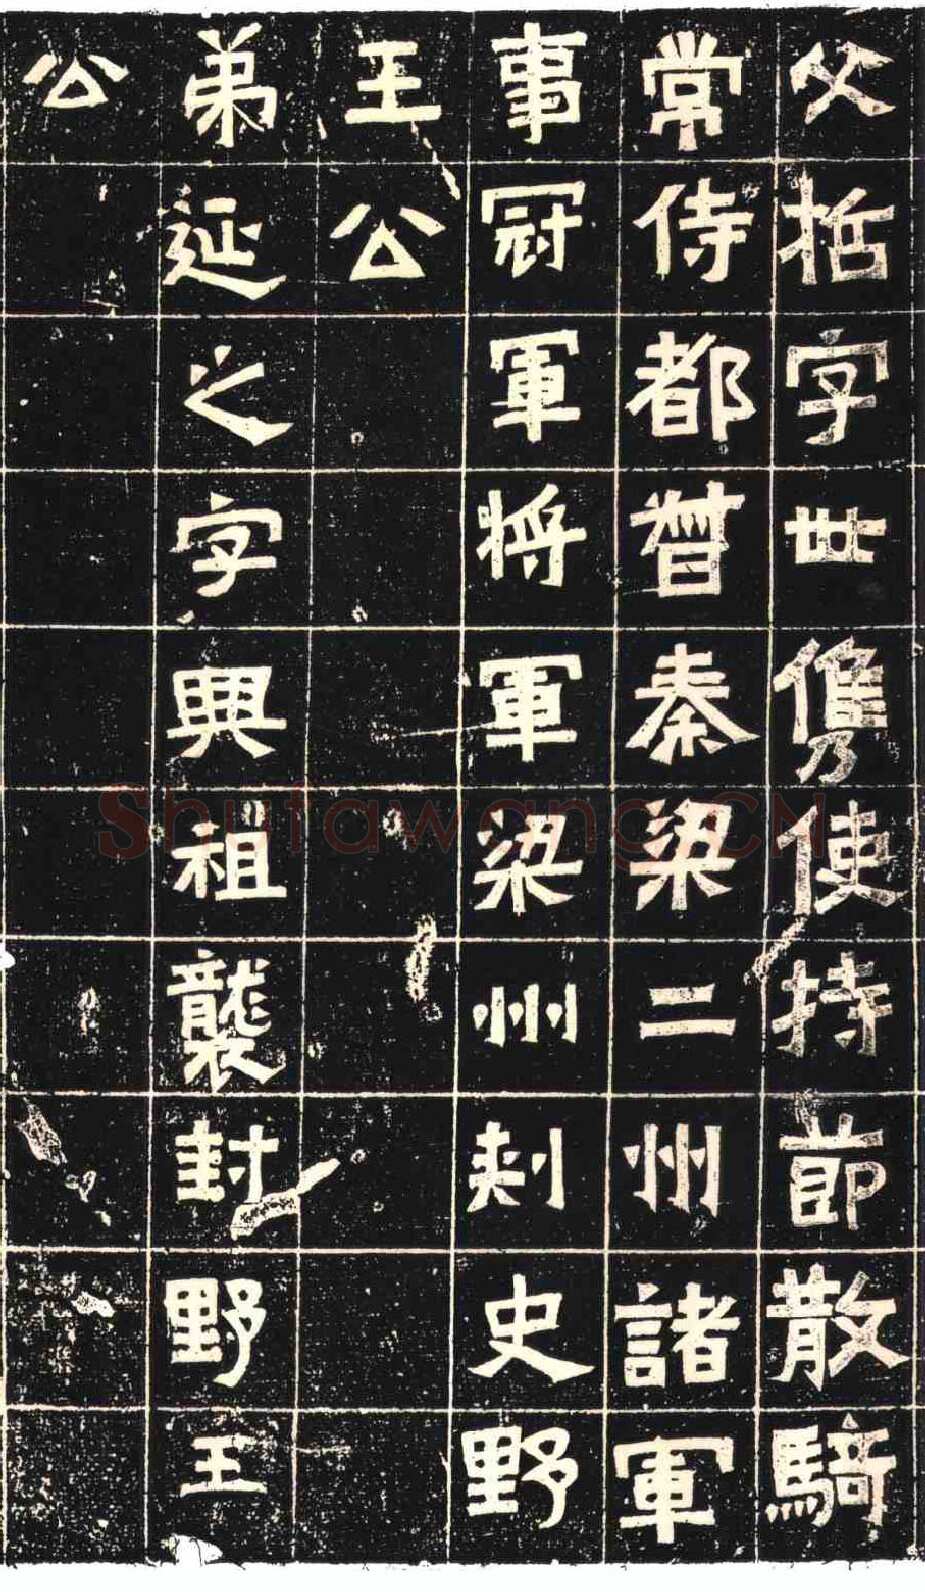 父括字世儁使持節散騎
常侍都督秦梁二州諸軍
事冠軍將軍梁州刺史野
王公
弟延之字興祖襲封野王
公
Shufawang.CN